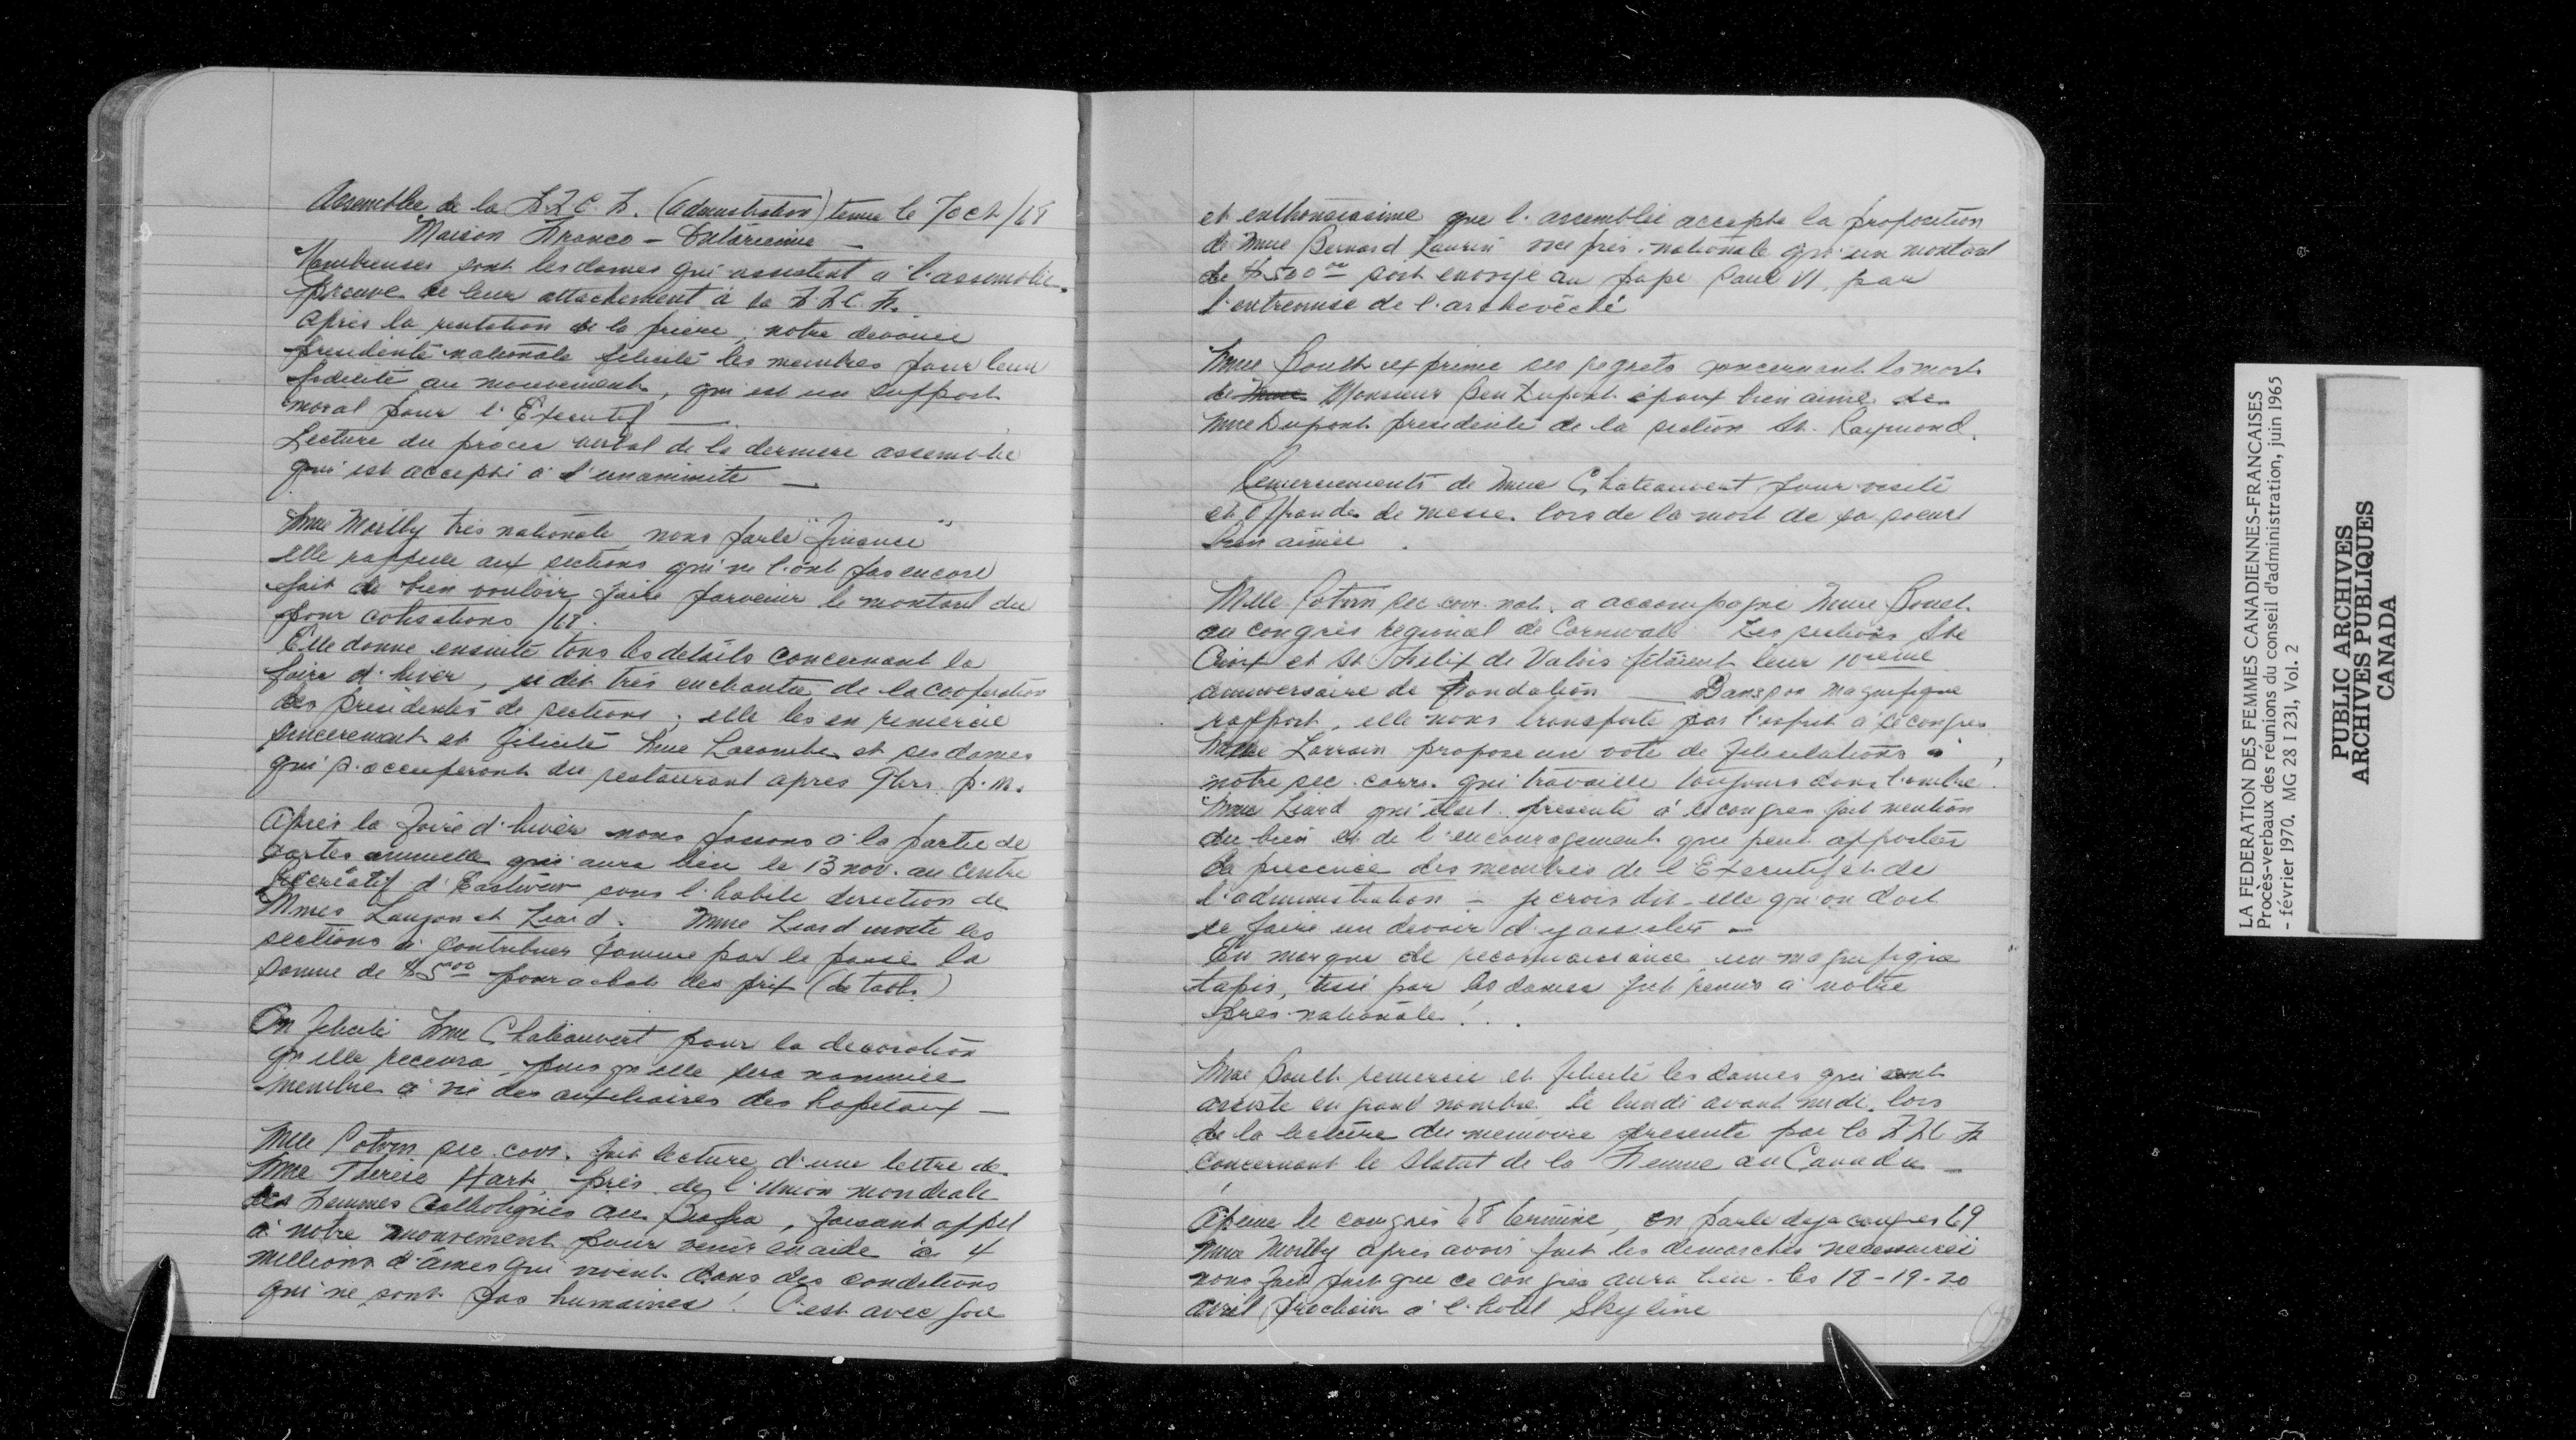 Assemblée de la F.F.C.F. (administration) tenue le 7 oct/68
Maison Franco-Ontarienne —
Nombreuses sont les dames qui assistent à l'assemblée.
preuve de leur attachement à la F.F.C.F.
Après la récitation de la prière, notre dévouée
présidente nationale félicite les membres pour leur
fidélité au mouvement, qui est un support
moral pour l'Exécutif —
Lecture du procès verbal de la dernière assemblée
qui est accepté à l'unanimité —
Mme Morlby trés nationale, nous parle "finance"
elle rappelle aux sections qui ne l'ont pas encore
fait de bien vouloir faire parvenir le montant du
pour cotisations /68.
Elle donne ensuite tous les détails concernant la
foire d'hiver, se dit très enchantée de la coopération
des présidentes de sections; elle les en remercie
sincèrement et félicite Mme Lacombe et ses dames
qui s'occuperont du restaurant après 9 hrs. p.m.
Après la foire d'hiver nous passons à la partie de
cartes annuelle qui aura lieu le 13 nov. au Centre
Récréatif d'Eastview sous l'habile direction de
Mmes Lauzon et Liard. Mme Liard invite les
sections à contribuer comme par le passé la
somme de $5.00 pour achat des prix (de table)
On félicite Mme Chateauvert pour la décoration
qu'elle recevra, puis qu'elle sera nommée
membre à vie des auxiliaires des hopitaux —
Mlle Potvin sec. corr. fait lecture d'une lettre de
Mme Thérèse Hart, prés. de l'Union mondiale
des Femmes Catholiques au Biafra, faisant appel
à notre mouvement pour venir en aide à 4
millions d'âmes qui vivent dans des conditions
qui ne sont pas humaines! C'est avec joie
et enthousiasme que l'assemblée accepte la proposition
de Mme Bernard Laurin vice prés. nationale qu'un montant
de $500.00 soit envoyé au pape Paul VI, par
l'entremise de l'archevêché
Mme Boult exprime ses regrets concernant la mort
de Mme Monsieur Ben Dupont époux bien aimé de
Mme Dupont présidente de la section St. Raymond.
Remerciements de Mme Chateauvert pour visite
et offrandes de messe lors de la mort de sa soeur
bien aimée.
Mlle Potvin sec. corr. nat. a accompagné Mme Boult
au congrès régional de Cornwall. Les sections Ste
Croix et St Félix de Valois fêtèrent leur 10ième
anniversaire de fondation — Dans son magnifique
rapport, elle nous transporte par l'esprit à ce congrès
Mme Lorrain propose un vote de félicitations à
notre sec. corr. qui travaille toujours dans l'ombre.
Mme Liard qui était présente à ce congrès fait mention
du bien et de l'encouragement que peut apporter
la présence des membres de l'Exécutif et de
l'administration — je crois dit-elle qu'on doit
se faire un devoir d'y assister —
En marque de reconnaissance un magnifique
tapis, tissé par les dames fut remis à notre
prés. nationale! . .
Mme Boult remercie et félicite les dames qui ont
assisté en grand nombre, le lundi avant midi, lors
de la lecture du mémoire présenté par la F.F.C.F.
concernant le Statut de la Femme au Canada —
À peine le congrès 68 terminé, on parle déjà congrès 69
Mme Morlby après avoir fait les démarches nécessaires
nous fait part que ce congrès aura lieu les 18-19-20
avril prochain à l'hotel Skyline
LA FEDERATION DES FEMMES CANADIENNES-FRANCAISES
Procès-verbaux des réunions du conseil d'administration, juin 1965
- février 1970. MG 28 I 231, Vol. 2
PUBLIC ARCHIVES
ARCHIVES PUBLIQUES
CANADA